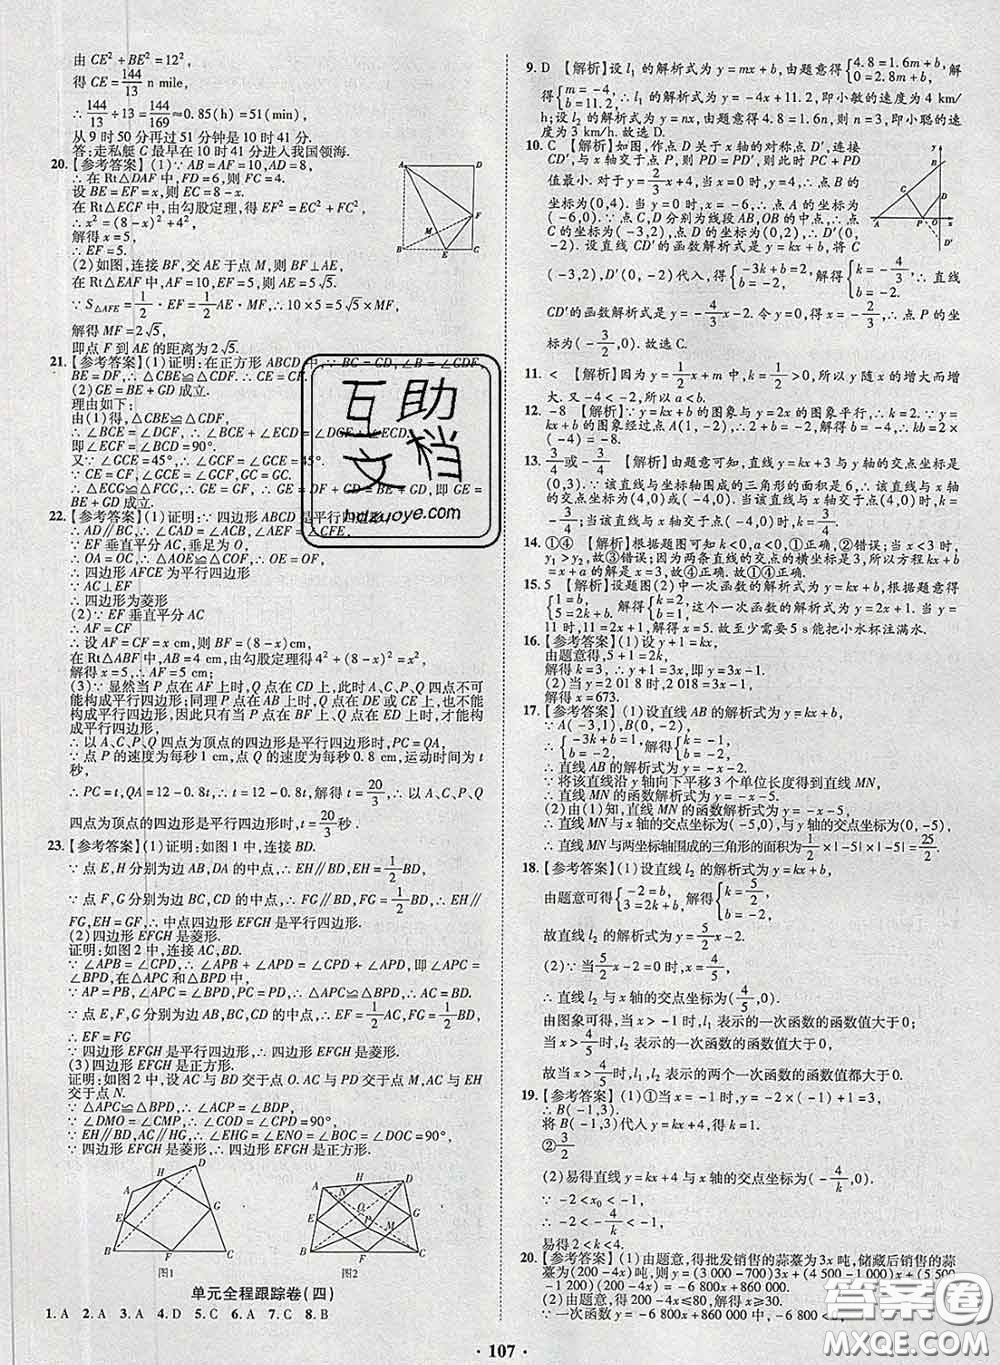 由 CE²+BE²=12²,
得 CE=144/13 n mile,
∴ 144/13÷13=144/169≈0.85(h)≈51(min),
从 9 时 50 分再过 51 分钟是 10 时 41 分.
答:走私艇 C 最早在 10 时 41 分进入我国领海.
20.【参考答案】(1)∵AB=AF=10,AD=8,
∴在 Rt△DAF 中,FD=6,则 FC=4.
在 Rt△BCE 中,设 EF=x,则 EC=8-x.
在 Rt△ECF 中,由勾股定理,得 EF²=EC²+FC²,
∴x²=(8-x)²+4²,
解得 x=5,
∴EF=5.
(2)如图,连接 BF,交 AE 于点 M,则 BF⊥AE,
在 Rt△EAF 中,AF=10,EF=5,则 AE=5√5.
∵S△AFE=1/2·AF·EF=1/2AE·MF,∴10×5=5√5×MF,
解得 MF=2√5,
即点 F 到 AE 的距离为 2√5.
21.【参考答案】(1)证明:在正方形 ABCD 中,∵BC=CD,∠B=∠CDF,
BE=DF,∴△CBE≌△CDF.∴CE=CF.
(2)GE=BE+GD 成立.
理由如下:
由(1)得,△CBE≌△CDF,
∴∠BCE=∠DCF,∴∠BCE+∠ECD=∠DCF+∠ECD,
即∠ECF=∠BCD=90°.
又∵∠GCE=45°,∴∠GCF=∠GCE=45°.
∵CE=CF,∠GCE=∠GCF,GC=GC,
∴△ECG≌△FCG.∴GE=GF.∴GE=DF+GD=BE+GD,即 GE=
BE+GD 成立.
22.【参考答案】(1)证明:∵四边形 ABCD 是平行四边形,
∴AD∥BC,∴∠CAD=∠ACB,∠AEF=∠CFE.
∵EF 垂直平分 AC,垂足为 O,
∴OA=OC,∴△AOE≌△COF,∴OE=OF,
∴四边形 AFCE 为平行四边形
∵AC⊥EF
∴四边形为菱形
(2)∵EF 垂直平分 AC
∴AF=CF
∴设 AF=CF=x cm,则 BF=(8-x)cm.
在 Rt△ABF 中,AB=4 cm,由勾股定理得 4²+(8-x)²=x²,
解得 x=5,∴AF=5 cm;
(3)∵显然当 P 点在 AF 上时,Q 点在 CD 上时,此时 A、C、P、Q 四点不可能
构成平行四边形;同理 P 点在 AB 上时,Q 点在 DE 或 CE 上时,也不
能构成平行四边形.因此只有当 P 点在 BF 上、Q 点在 ED 上时,才能构
成平行四边形,
∴以 A、C、P、Q 四点为顶点的四边形是平行四边形时,PC=QA,
∵点 P 的速度为每秒 1 cm,点 Q 的速度为每秒 0.8 cm,运动时间为 t
秒,
∴PC=t,QA=12-0.8t,∴t=12-0.8t,解得 t=20/3,∴以 A、C、P、Q
四点为顶点的四边形是平行四边形时,t=20/3秒.
23.【参考答案】(1)证明:如图 1 中,连接 BD.
∵点 E,H 分别为边 AB,DA 的中点,∴EH∥BD,EH=1/2BD.
∵点 F,G 分别为边 BC,CD 的中点,∴FG∥BD,FG=1/2BD,
∴EH∥FG,EH=GF,∴中点四边形 EFGH 是平行四边形.
(2)四边形 EFGH 是菱形.
证明:如图 2 中,连接 AC,BD.
∵∠APB=∠CPD,∴∠APB+∠APD=∠CPD+∠APD,即∠APC=
∠BPD,在△APC 和△BPD 中,
∵AP=PB,∠APC=∠BPD,PC=PD,∴△APC≌△BPD,∴AC=BD.
∵点 E,F,G 分别为边 AB,BC,CD 的中点,∴EF=1/2AC,FG=1/2BD,
∴EF=FG
∵四边形 EFGH 是平行四边形,∴四边形 EFGH 是菱形.
(3)四边形 EFGH 是正方形.
证明:如图 2 中,设 AC 与 BD 交于点 O.AC 与 PD 交于点 M,AC 与 EH
交于点 N.
∵△APC≌△BPD,∴∠ACP=∠BDP,
∵∠DMO=∠CMP,∴∠COD=∠CPD=90°,
∵EH∥BD,AC∥HG,∴∠EHG=∠ENO=∠BOC=∠DOC=90°,
∵四边形 EFGH 是菱形,∴四边形 EFGH 是正方形.
图1
图2
单元全程跟踪卷(四)
1.A 2.A 3.A 4.D 5.C 6.A 7.C 8.B
9.D 【解析】设 l₁ 的解析式为 y=mx+b,由题意得{4.8=1.6m+b, 0=2.8m+b, 解
得{m=-4, b=11.2, ∴l₁ 的解析式为 y=-4x+11.2,即小敏的速度为 4 km/
h;设 l₂ 的解析式为 y=nx,由题意得 4.8=1.6n,则 n=3,即小聪的速
度为 3 km/h.故选 D.
10.C 【解析】如图,作点 D 关于 x 轴的对称点 D′,连接
CD′,与 x 轴交于点 P,则 PD=PD′,则此时 PC+PD
值最小.对于 y=2/3x+4,当 x=0 时,y=4,∴点 B 的坐
标为(0,4).当 y=0 时,x=-6,∴点 A 的坐标为
(-6,0).∵点 C,D 分别为线段 AB,OB 的中点,∴点
C 的坐标为(-3,2),点 D(0,2).∵点 D′(0,
-2).设直线 CD′的函数解析式为 y=kx+b,将 C
(-3,2),D′(0,-2)代入,得{-3k+b=2, b=-2, 解得{k=-4/3, b=-2, ∴直线
CD′的函数解析式为 y=-4/3x-2.令 y=0,则 x=-3/2,∴点 P 的坐
标为(-3/2,0).故选 C.
11.< 【解析】因为 y=1/2x+m 中,k=1/2>0,所以 y 随 x 的增大而增
大.又 -4<-2,所以 a<b.
12.-8 【解析】∵y=kx+b 的图象与 y=2x 的图象平行,∴k=2.∵y=
kx+b 的图象经过点 A(1,-2),∴2+b=-2,解得 b=-4,∴kb=2×
(-4)=-8.
13.3/4或-3/4 【解析】由题意可知,直线 y=kx+3 与 y 轴的交点坐标是
(0,3).∵该直线与坐标轴围成的三角形的面积为 6,∴该直线与 x
轴的交点坐标为(4,0)或(-4,0).当该直线与 x 轴交于点(4,0)时,k=
-3/4;当该直线与 x 轴交于点(-4,0)时,k=3/4.
14.①④ 【解析】根据题图可知 k<0,a<0,①正确,②错误;当 x<3 时,
y₁>y₂,故③错误;因为两条直线的交点的横坐标是 3,所以方程 kx+b
=x+a 的解是 x=3,故④正确.故填①④.
15.5 【解析】设题图(2)中一次函数的解析式为 y=kx+b,根据题意得
{1=b, 5=2k+b. 解得{k=2, b=1, 这个一次函数的解析式为 y=2x+1.当 y=
11 时,11=2x+1,解得 x=5.故至少需要 5 s 能把小水杯注满水.
16.【参考答案】(1)设 y+1=kx,
由题意得,5+1=2k,
解得 k=3.∴y+1=3x,即 y=3x-1.
(2)当 y=2 018 时,2 018=3x-1,
解得 x=673.
17.【参考答案】(1)设直线 AB 的解析式为 y=kx+b,
∵A(-3,1),B(0,-2),
∴{-3k+b=1, b=-2, 解得{k=-1, b=-2,
∴直线 AB 的解析式为 y=-x-2.
∵将该直线沿 y 轴向下平移 3 个单位长度得到直线 MN,
∴直线 MN 的函数解析式为 y=-x-5.
(2)由(1)知,直线 MN 的函数解析式为 y=-x-5,
∴直线 MN 与 x 轴的交点坐标为(-5,0),与 y 轴的交点坐标为(0,-5),
∴直线 MN 与两坐标轴围成的三角形的面积为1/2×|-5|×|-5|=25/2.
18.【参考答案】(1)设直线 l₂ 的解析式为 y=kx+b,
由题意可得{-2=b, 3=2k+b, 解得{k=5/2, b=-2,
故直线 l₂ 的解析式为 y=5/2x-2.
(2)∵当5/2x-2=0 时,x=4/5,
∴直线 l₂ 与 x 轴的交点坐标为(4/5,0).
由图象可得,当 x>-1 时,l₁ 表示的一次函数的函数值大于 0;
当 x>4/5时,l₂ 表示的一次函数的函数值大于 0;
故当 x>4/5时,l₁,l₂ 表示的两个一次函数的函数值都大于 0.
19.【参考答案】(1)①当 x=-1 时,y=-2×(-1)+1=3,
∴B(-1,3).
将 B(-1,3)代入 y=kx+4,得 k=1.
②3/2
(2)易得直线 y=kx+4 与 x 轴的交点坐标为(-4/k,0).
∵-2<x₀<-1,
∴-2<-4/k<-1,
易得 2<k<4.
20.【参考答案】(1)由题意,得批发销售的蒜薹为 3x 吨,储藏后销售的蒜
薹为(200-4x)吨,则 y=3x(3 000-700)+x(4 500-700)+(5 500
-1 200)(200-4x)=-6 800x+860 000.
(2)200-4x≤80,解得 x≥30,
∵一次函数 y=-6 800x+860 000 中,-6 800<0,
107
互助
文档
hdzuoye.com
答案圈
MXQE.COM